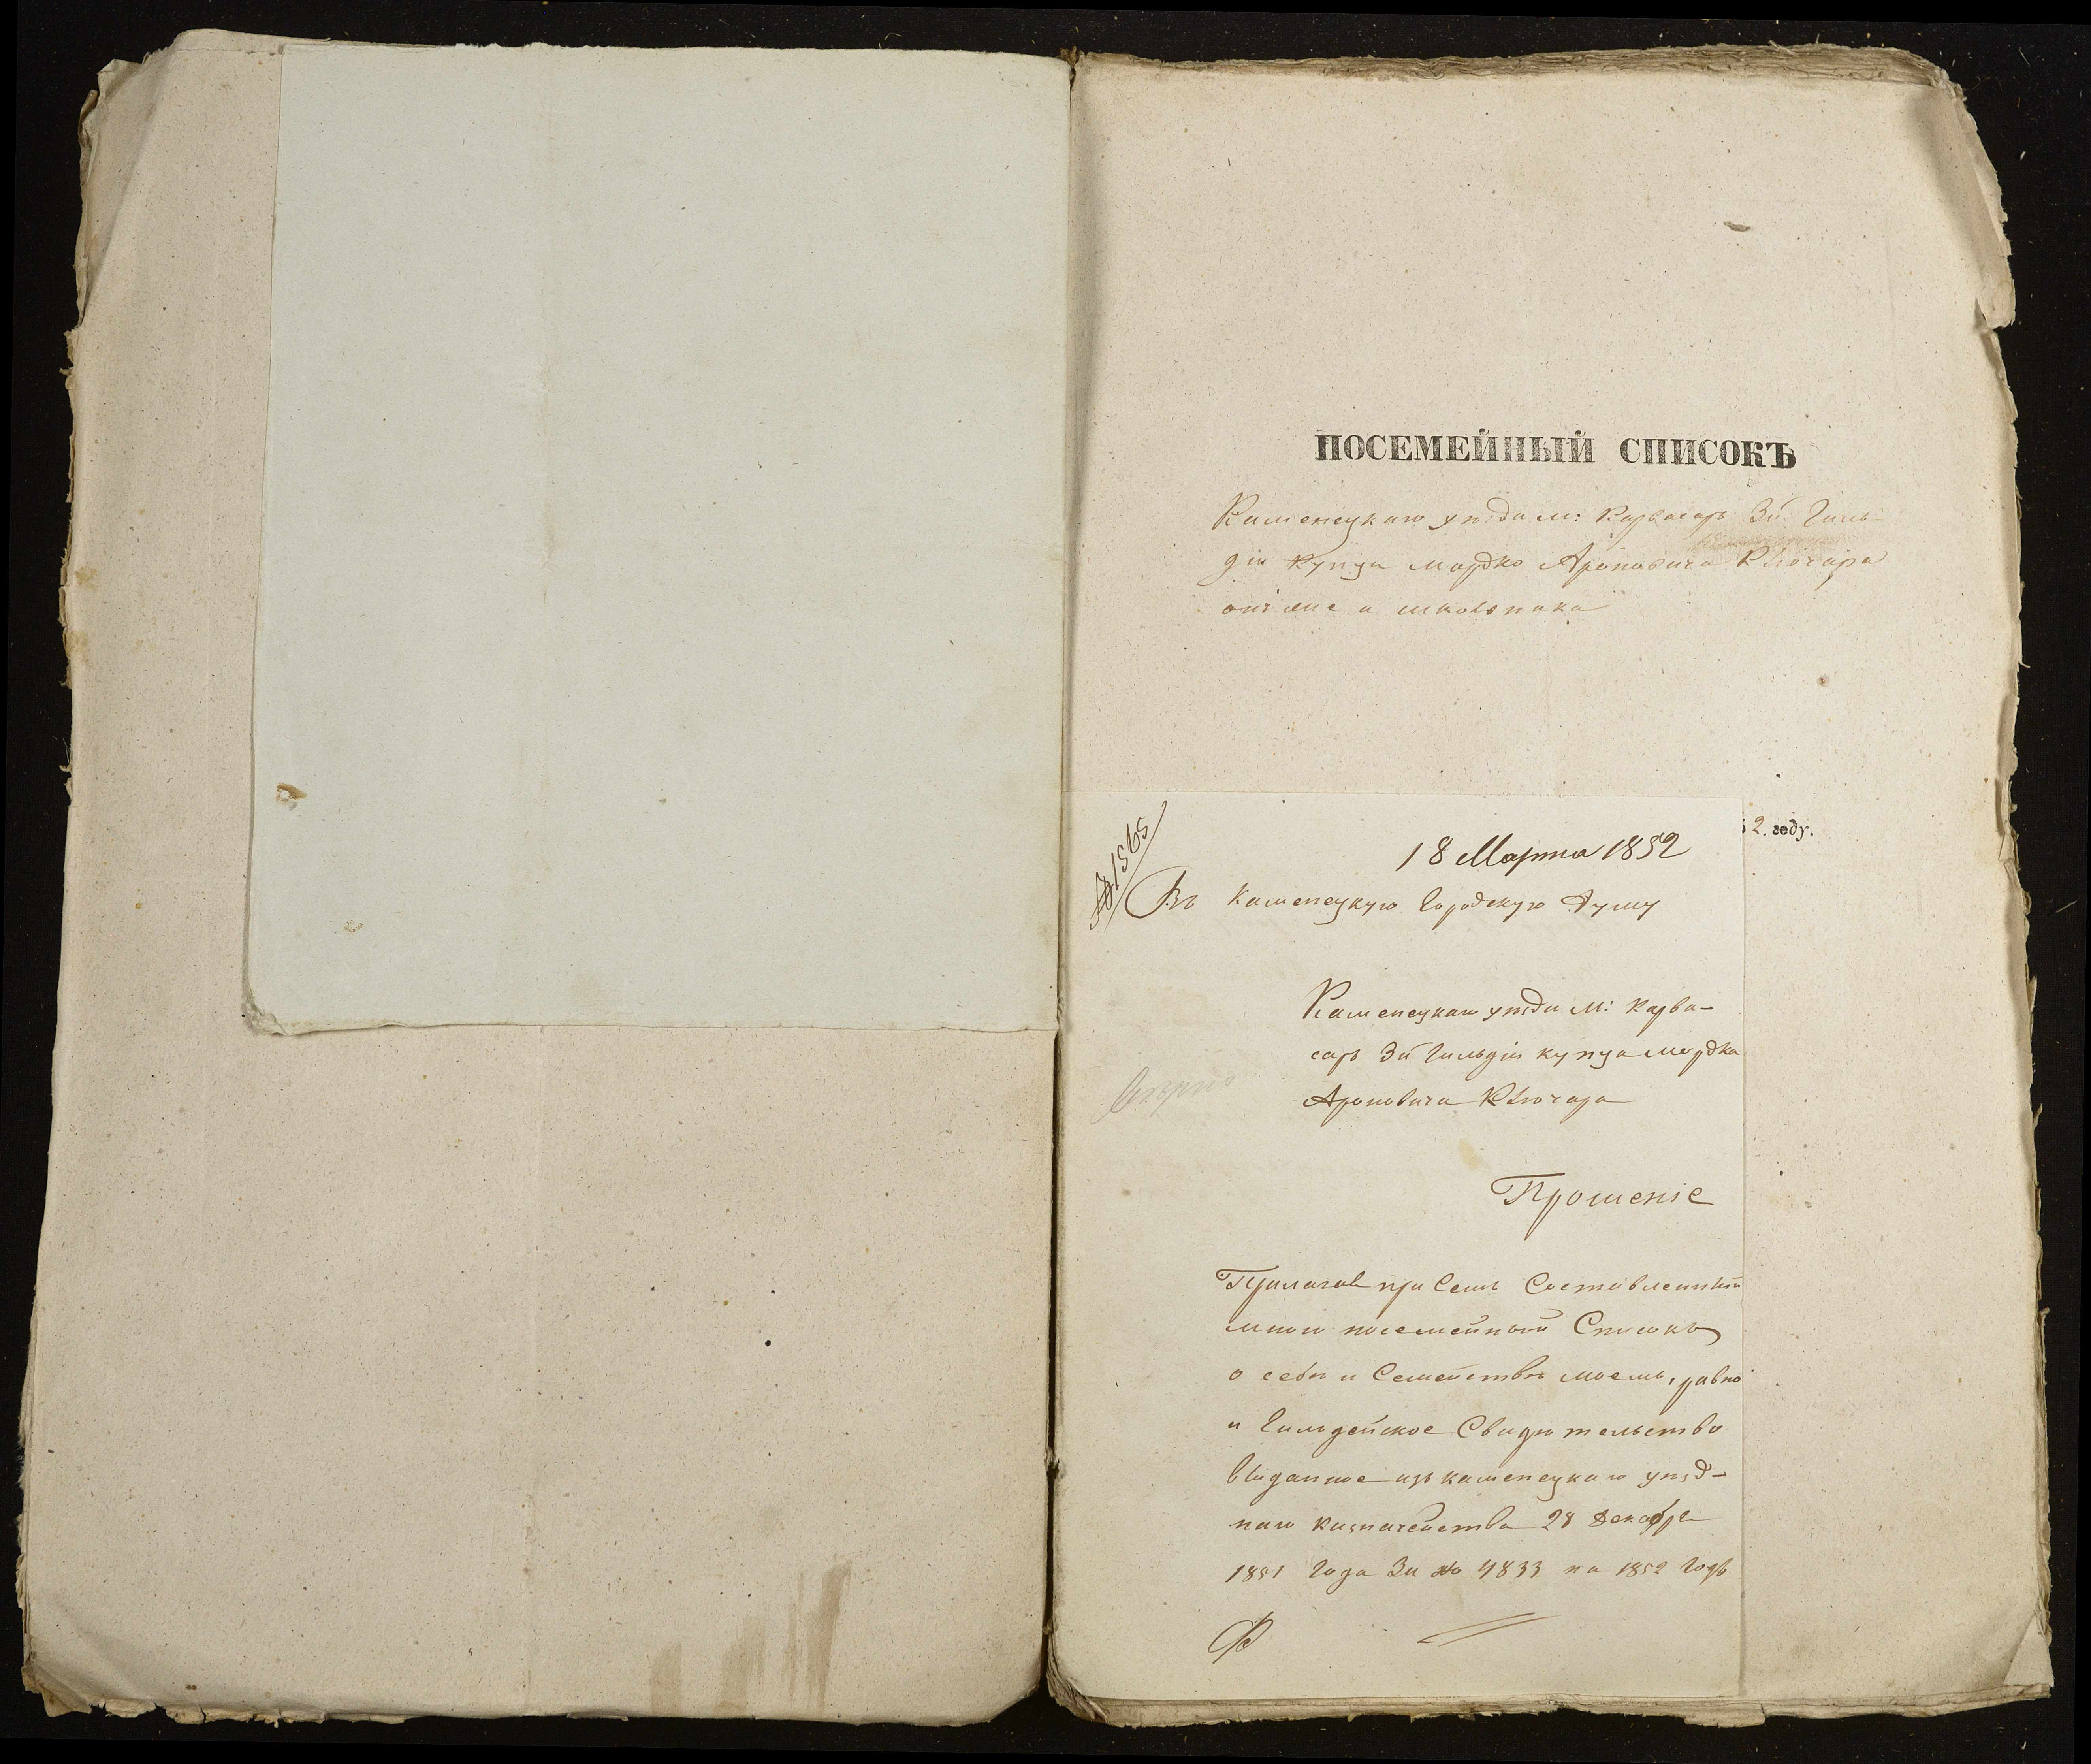 ПОСЕМЕЙНЫЙ СПИСОКЪ
Каменецкаго уѣзда м: Карвасаръ 3й Гиль-
діи купца Мордко Ароновича Ключара
2. году.
№ 1565
18 Марта 1852
Въ Каменецкую Городскую Думу
Каменецкаго уѣзда М: Карва-
саръ 3й Гильдіи купца Мордка
Ароновича Ключара
Прошеніе
Прилагая при семъ Составленный
мною посемейный Списокъ
о себѣ и Семействѣ моемъ, равно
и Гильдейское Свидѣтельство
выданное изъ Каменецкаго уѣзд-
наго Казначейства 28 Декабря
1851 Года За № 4833 на 1852 Годъ